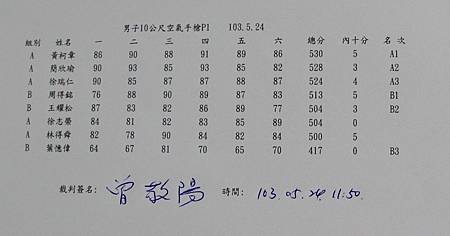 男子10公尺空氣手槍PI 103.5.24
組別 姓名 一 二 三 四 五 六 總分 內十分 名次
A 黃柯章 86 90 88 91 89 86 530 5 A1
A 簡欣瑜 90 93 85 93 85 82 528 3 A2
A 徐瑞仁 90 85 87 87 88 87 524 4 A3
B 周得銘 76 88 90 89 87 83 513 5 B1
B 王耀松 87 83 82 86 89 77 504 3 B2
A 徐志榮 84 81 82 83 85 89 504 0
A 林得舜 82 78 90 84 82 84 500 5
B 葉億偉 64 67 81 70 65 70 417 0 B3
裁判簽名: 曾敬陽 時間: 103.05.24 11:50.